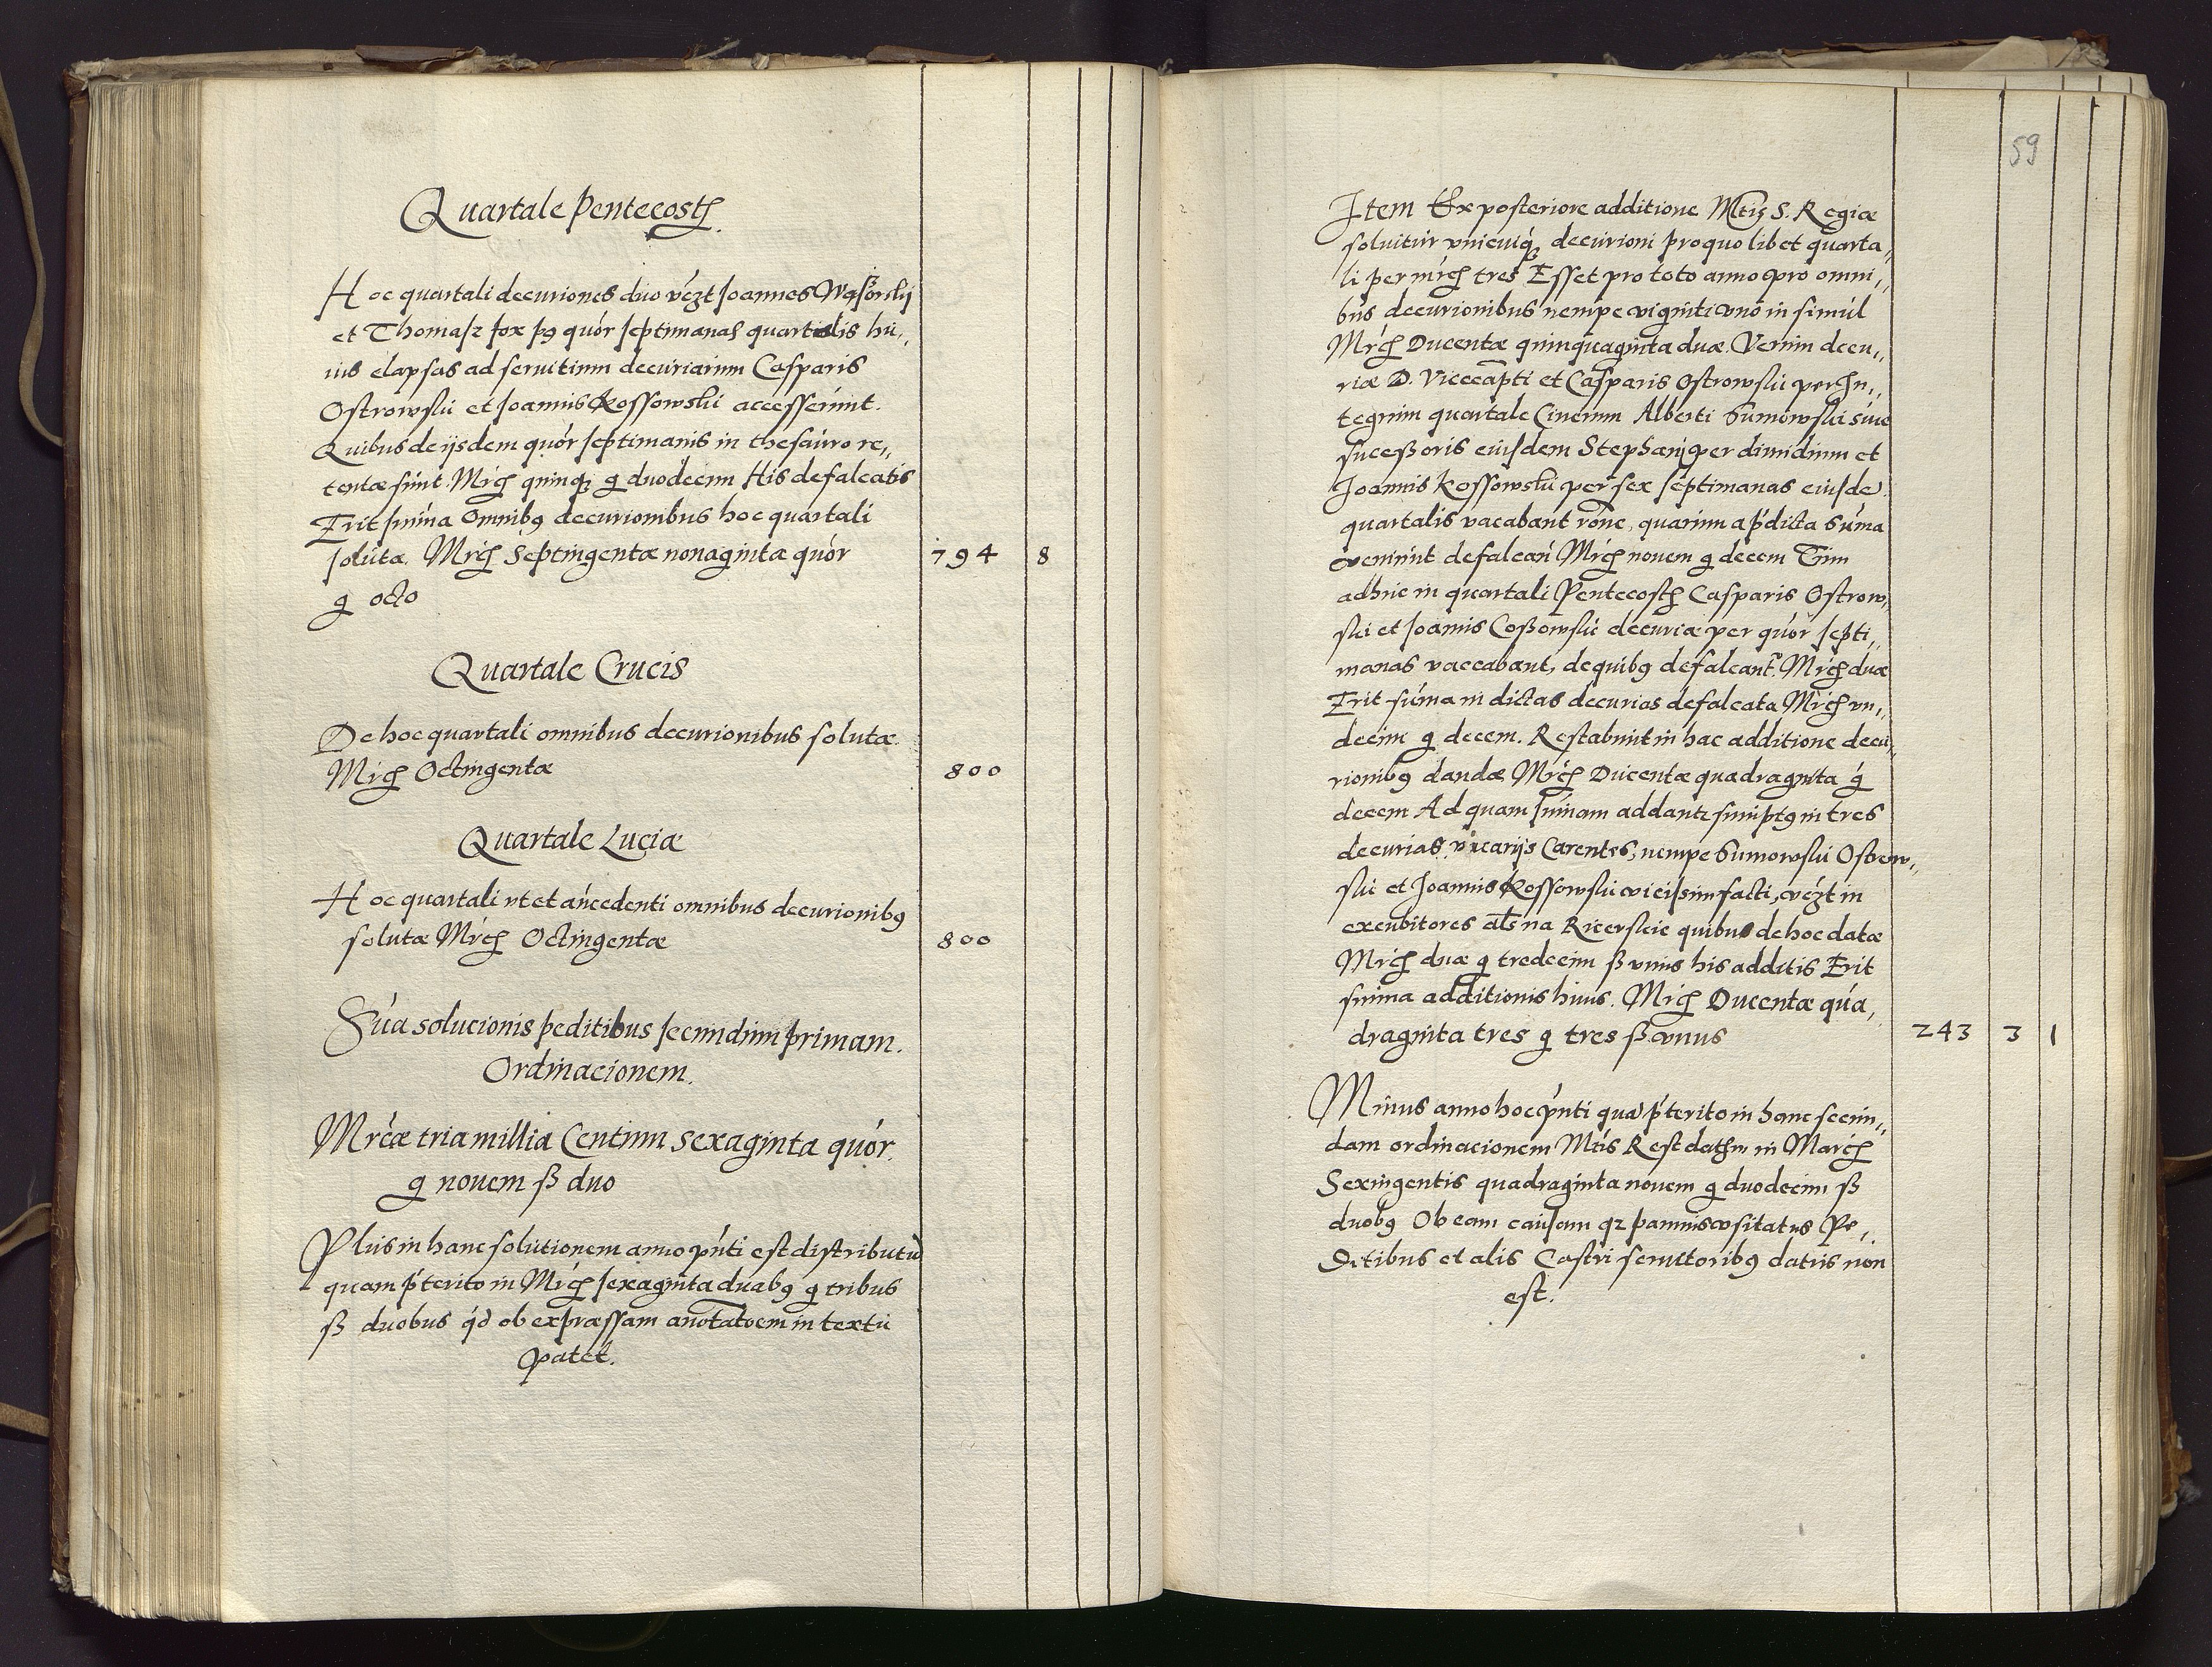 Quartale Pentecosth.
Hoc quartali decuriones duo vẻzt Joannes Wąsorskÿ
et Thomasz fox p9 quór septimanas quartalis hu,,
ius elapsas ad seruitium decuriarum Casparis
Ostrowskii et Joannis Kossowskii accesserunt.
Quibus de ijsdem quór septimanis in thesauro re,,
tentæ sunt. Mrch quinq3 g duodecim His defalcatis
Erit suma Omnib9 decurionibus hoc quartali
solutæ. Mrch Septingentæ nonaginta quór 794 8
g octo
Quartale Crucis
De hoc quartali omnibus decurionibus solutæ.
Mrch Octingentæ 800
Quartale Luciæ
Hoc quartali ut et añcedenti omnibus decurionib9
solutæ Mrch Octingentæ 800
Sua solucionis peditibus secundum primam.
Ordinacionem.
Mrcæ tria millia Centum sexaginta quór.
g nouem ß duo
Plus in hanc solutionem anno pñti est distributũ
quam p'terito in Mrch sexaginta duab9 g tribus
ß duobus q'd ob expræssam anotatõem in textu
patet.
59
Item Ex posteriore additione Mtis S. Regiæ
soluitur unicuiq3 decurioni pro quo libet quarta,,
li per mrch tres Esset pro toto anno pro omni,,
bus decurionibus nempe viginti uno in simul
Mrch Ducentæ quinquaginta duæ. Verum decu,,
riæ D. Viceca̅pti et Casparis Ostrowskii per In,,
tegrum quartale Cinerum Alberti Sumowskii siue
sucessoris eiusdem Stephani per dimidium et
Joannis Kossowskii per sex septimanas eiusdẽ
quartalis vacabant rõne, quarum a p'dicta Suma
veniunt defalcari Mrch nouem g decem Tum
adhuc in quartali Pentecosth Casparis Ostrow,,
skii et Joannis Cossowskii decuriæ per quór septi,,
manas vaccabant, de quib9 defalcant'. Mrch duæ
Erit suma in dictas decurias defalcata Mrch un,,
decim g decem. Restabunt in hac additione decu,,
rionib9 dandæ Mrch Ducentæ quadraginta g
decem Ad quam sumam addantz sumpt9 in tres
decurias vicarijs Carentes, nempe Sumowskii Ostrow,,
skii et Joannis Kossowskii vicissim facti, vẻzt in
excubitores als na Ricerskie quibus de hoc datæ
Mrch duæ g tredecim ß unus his additis Erit
suma additionis huius. Mrch Ducentæ qua,
draginta tres g tres ß unus 243 3 1
Minus anno hoc pñti quã p'terito in hanc secun,,
dam ordinacionem Mtis R est dathm in March
Sexingentis quadraginta nouem g duodecim ß
duob9 Ob eam causam qz pannis usitatus Pe,,
ditibus et aliis Castri seruitorib9 datus non
est.